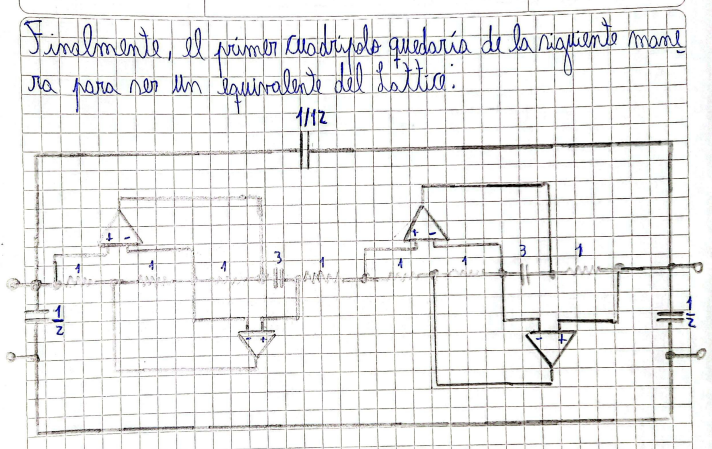 Finalmente, el primer cuadripolo quedaría de la siguiente mane
ra para ser un equivalente del Lattice:
1/12
+ -
+ -
1 1 1 3 1 1 1 3 1
1/2
- +
- +
1/2